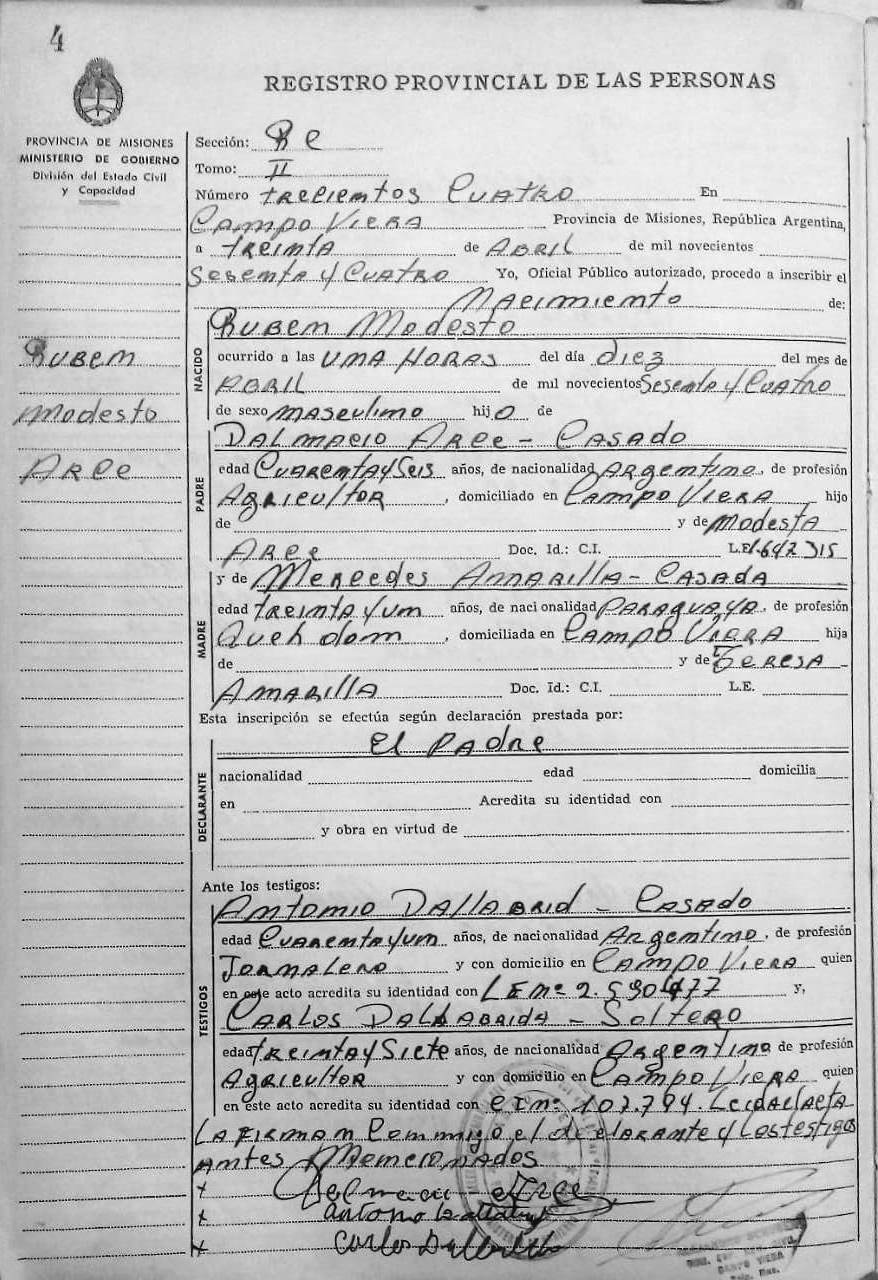 4
REGISTRO PROVINCIAL DE LAS PERSONAS
PROVINCIA DE MISIONES
MINISTERIO DE GOBIERNO
División del Estado Civil
y Capacidad
Rubem
Modesto
Arce
Sección: Rc
Tomo: II
Número trecientos Cuatro En
Campo Viera Provincia de Misiones, República Argentina,
a treinta de Abril de mil novecientos
Sesenta y Cuatro Yo, Oficial Público autorizado, procedo a inscribir el
Nacimiento de:
NACIDO
Rubem Modesto
ocurrido a las una horas del día diez del mes de
Abril de mil novecientos Sesenta y Cuatro
de sexo masculino hijo de
PADRE
Dalmacio Arce - Casado
edad Cuarenta y Seis años, de nacionalidad Argentino, de profesión
Agricultor, domiciliado en Campo Viera hijo
de y de Modesta
Arce Doc. Id.: C.I. L.E. 1.642.315
MADRE
y de Mercedes Amarilla - Casada
edad treinta y un años, de nacionalidad Paraguaya, de profesión
Queh dom, domiciliada en Campo Viera hija
de y de Teresa
Amarilla Doc. Id.: C.I. L.E.
Esta inscripción se efectúa según declaración prestada por:
DECLARANTE
El Padre
nacionalidad edad domicilia
en Acredita su identidad con
y obra en virtud de
Ante los testigos:
TESTIGOS
Antonio Dallabrid - Casado
edad Cuarenta y un años, de nacionalidad Argentino, de profesión
Jornalero y con domicilio en Campo Viera quien
en este acto acredita su identidad con L E Nº 2.590477 y,
Carlos Dallabrida - Soltero
edad treinta y Siete años, de nacionalidad Argentino de profesión
Agricultor y con domicilio en Campo Viera quien
en este acto acredita su identidad con C I Nº 107.794. Leida el acta
La firman Conmigo el declarante y Los testigos
antes Mencionados
x Dalmacio Arce
x Antonio
x Carlos